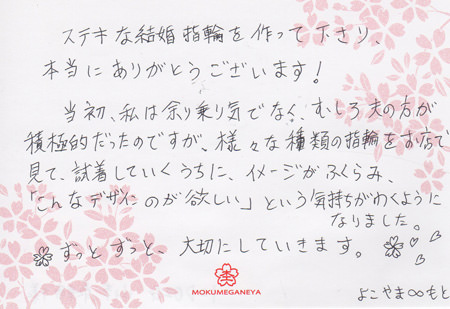 ステキな結婚指輪を作って下さり、
本当にありがとうございます！
当初、私は余り乗り気でなく、むしろ夫の方が
積極的だったのですが、様々な種類の指輪をお店で
見て、試着していくうちに、イメージがふくらみ、
「こんなデザインのが欲しい」という気持ちがわくように
なりました。
ずっとずっと、大切にしていきます。
MOKUMEGANEYA
よこやま∞もと